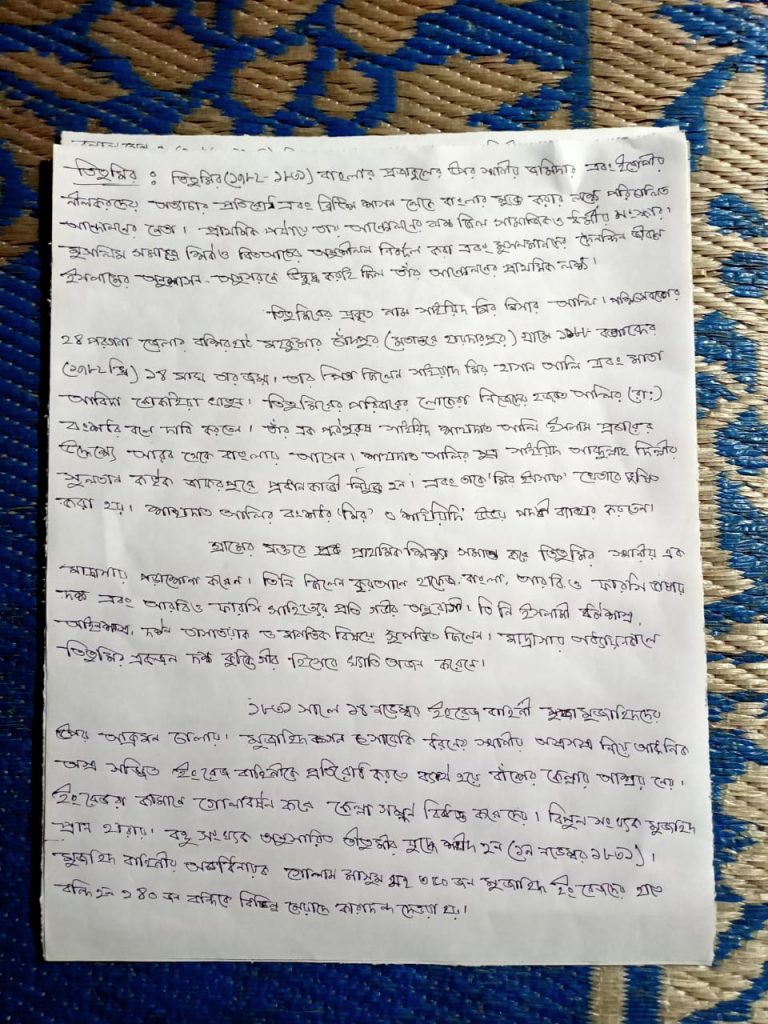 তিতুমির : তিতুমির (১৭৮২-১৮৩১) বাংলার প্রজাকুলের উপর স্থানীয় জমিদার এবং ইউরোপীয়
নীলকরদের অত্যাচার প্রতিরোধ এবং ব্রিটিশ শাসন থেকে বাংলার মুক্ত করার লক্ষ্যে পরিচালিত
আন্দোলনের নেতা। প্রাথমিক পর্যায়ে তার আন্দোলনের লক্ষ্য ছিল সামাজিক ও ধর্মীয় সংস্কার।
মুসলিম সমাজে শির্ক ও বিদআতের অনুশীলন নির্মূল করা এবং মুসলমানদের দৈনন্দিন জীবনে
ইসলামের অনুশাসন অনুসরণে উদ্বুদ্ধ করাই ছিল তাঁর আন্দোলনের প্রাথমিক লক্ষ্য।
তিতুমিরের প্রকৃত নাম সাইয়িদ মির নিসার আলি। পশ্চিমবঙ্গের
২৪ পরগনা জেলার বশিরহাট মহকুমার চাঁদপুর (মতান্তরে হায়দারপুর) গ্রামে ১১৮৮ বঙ্গাব্দের
(১৭৮২ খ্রি) ১৪ মাঘ তার জন্ম। তার পিতা ছিলেন সাইয়িদ মির হাসান আলি এবং মাতা
আবিদা রোকাইয়া খাতুন। তিতুমিরের পরিবারের লোকেরা নিজেদের হজরত আলির (রা:)
বংশধর বলে দাবি করতেন। তাঁর এক পূর্বপুরুষ সাইয়িদ শাহাদাত আলি ইসলাম প্রচারের
উদ্দেশ্যে আরব থেকে বাংলায় আসেন। শাহাদাত আলির পুত্র সাইয়িদ আব্দুল্লাহ দিল্লীর
সুলতান কর্তৃক জাফরপুরে প্রধান কাজী নিযুক্ত হন। এবং তাকে 'মির ইনসাফ' খেতাবে ভূষিত
করা হয়। শাহাদাত আলির বংশধর 'মির' ও 'সাইয়িদ' উভয় পদবী ব্যবহার করতেন।
গ্রামের মক্তবে প্রাথমিক শিক্ষা সমাপ্ত করে তিতুমির স্থানীয় এক
মাদ্রাসায় পড়াশোনা করেন। তিনি ছিলেন কুরআনে হাফেজ, বাংলা, আরবি ও ফারসি ভাষায়
দক্ষ এবং আরবি ও ফারসি সাহিত্যের প্রতি গভীর অনুরাগী। তিনি ইসলামী ধর্মশাস্ত্র,
আইনশাস্ত্র, দর্শন তাসাওয়াফ ও মানতিক বিষয়ে সুপণ্ডিত ছিলেন। মাদ্রাসায় অধ্যয়নকালে
তিতুমির একজন দক্ষ কুস্তিগীর হিসেবে খ্যাতি অর্জন করেন।
১৮৩১ সালে ১৪ নভেম্বর ইংরেজ বাহিনী মুজাহিদদের
উপর আক্রমণ চালায়। মুজাহিদগণ সনাতন ধরনের স্থানীয় অস্ত্রশস্ত্র নিয়ে আধুনিক
অস্ত্র সজ্জিত ইংরেজ বাহিনীকে প্রতিরোধ করতে ব্যর্থ হয়ে বাঁশের কেল্লায় আশ্রয় নেয়।
ইংরেজরা কামানে গোলাবর্ষণ করে কেল্লা সম্পূর্ণ বিধ্বস্ত করে দেয়। বিপুল সংখ্যক মুজাহিদ
প্রাণ হারায়। বহু সংখ্যক অনুসারিত তীতুমীর যুদ্ধে শহীদ হন (১৯ নভেম্বর ১৮৩১)।
মুজাহিদ বাহিনীর অধিনায়ক গোলাম মাসুম সহ ৩৫০ জন মুজাহিদ ইংরেজদের হাতে
বন্দি হন ১৪০ জন বন্দিকে বিভিন্ন মেয়াদে কারাদন্ড দেওয়া হয়।